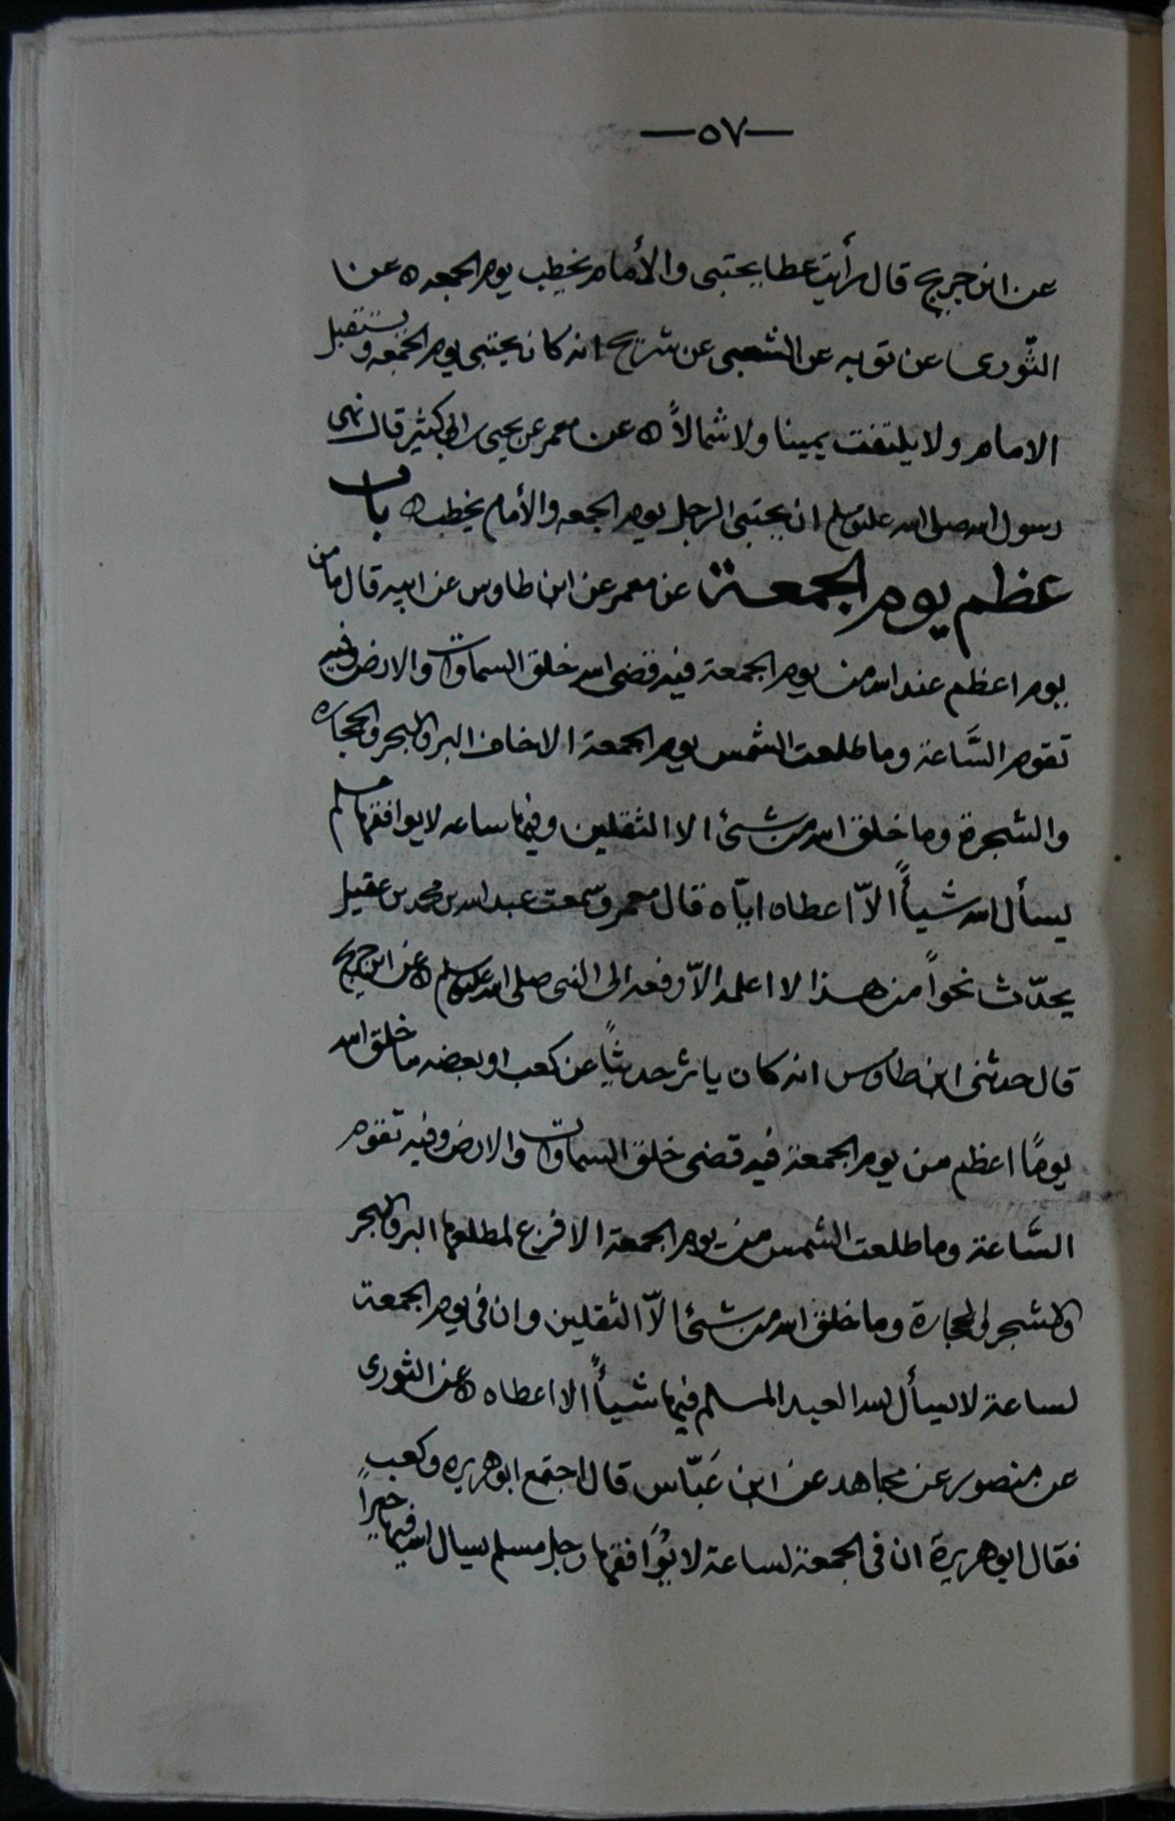 —٥٧—
عن ابن جريج قال رأيت عطا يحتبى والأمام يخطب يوم الجمعه ه عن
الثّورى عن توبه عن الشعبى عن شريح انه كان يحتبى يوم الجمعه ويستقبل
الامام ولا يلتفت يمينا ولا شمالاً ه عن معمر عن يحيى بن ابى كثير قال نهى
رسول الله صلى الله عليه وسلم ان يحتبى الرجل يوم الجمعه والأمام يخطب ه باب
عظم يوم الجمعة عن معمر عن ابن طاوس عن ابيه قال ما من
يوم اعظم عند الله من يوم الجمعة فيه قضى الله خلق السماوات والارض وفيه
تقوم السَّاعة وما طلعت الشمس يوم الجمعة الا خاف البر والبحر والحجاره
والشجرة وما خلق الله من شئ الا الثقلين وفيها ساعه لا يوافقها مسلم
يسأل الله شيأً الاّ اعطاه ايّاه قال معمر وسمعت عبد الله بن محمد بن عقيل
يحدّث نحواً من هذا لا اعلمه الاّ رفعه الى النبى صلى الله عليه وسلم ه عن ابن جريج
قال حدثنى ابن طاوس انه كان ياثر حديثاً عن كعب او بعضه ما خلق الله
يومًا اعظم من يوم الجمعة فيه قضى خلق السماوات والارض وفيه تقوم
السَّاعة وما طلعت الشمس من يوم الجمعة الا فزع لمطلعها البر والبحر
والشجر والحجارة وما خلق الله من شئ الاّ الثقلين وان فى يوم الجمعة
لساعة لا يسأل الله العبد المسلم فيها شيأً الا اعطاه ه عن الثورى
عن منصور عن مجاهد عن ابن عَبّاس قال اجتمع ابو هريره وكعب
فقال ابو هريرة ان فى الجمعة لساعة لا يُوَافقها رجل مسلم يسال الله فيها خيراً